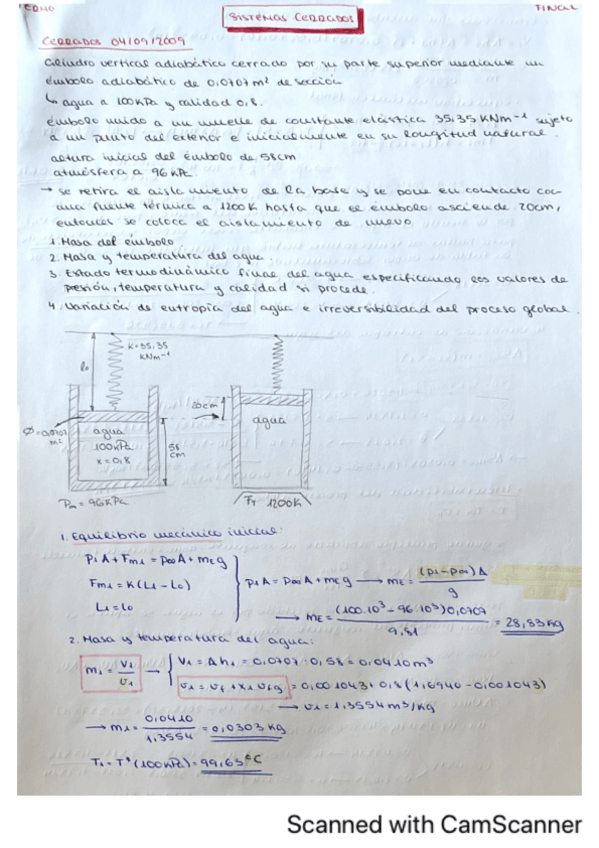 TERMO
SISTEMAS CERRADOS
FINAL
CERRADOS 04/09/2009
Cilindro vertical adiabático cerrado por su parte superior mediante un
émbolo adiabático de 0,0707 m² de sección
↳ agua a 100 kPa y calidad 0,8.
émbolo unido a un muelle de constante elástica 35,35 KNm⁻¹ sujeto
a un punto del exterior e inicialmente en su longitud natural.
altura inicial del émbolo de 58cm
atmósfera a 96 kPa.
→ se retira el aislamiento de la base y se pone en contacto con
una fuente térmica a 1200K hasta que el émbolo asciende 20cm,
entonces se coloca el aislamiento de nuevo.
1. Masa del émbolo
2. Masa y temperatura del agua.
3. Estado termodinámico final del agua especificando los valores de
presión, temperatura y calidad si procede.
4. Variación de entropía del agua e irreversibilidad del proceso global.
l₀
K=35,35
KNm⁻¹
20cm
Ø=0,0707
m²
agua
100kPa
x=0,8
58
cm
agua
P∞ = 96KPa
FT 1200K
1. Equilibrio mecánico inicial:
P₁A + Fm₁ = P∞A + mE g
Fm₁ = K(L₁ - L₀)
L₁ = L₀
P₁A = P∞A + mE g → mE = (P₁ - P∞)A / g
→ mE = (100·10³ - 96·10³)0,0707 / 9,81 = 28,83 kg
2. Masa y temperatura del agua:
m₁ = V₁ / v₁ → V₁ = A h₁ = 0,0707 · 0,58 = 0,0410 m³
v₁ = vf + x₁ vfg = 0,001043 + 0,8(1,6940 - 0,001043)
→ v₁ = 1,3554 m³/kg
→ m₁ = 0,0410 / 1,3554 = 0,0303 kg
T₁ = Tˢ (100kPa) = 99,63 °C
Scanned with CamScanner